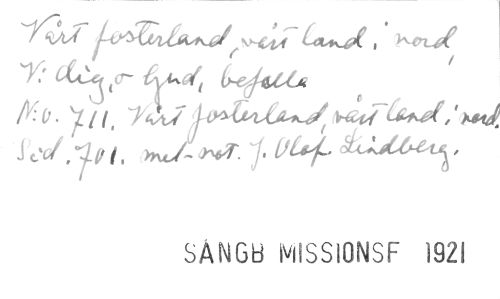 Vårt fosterland, vårt land i nord,
Vi dig, o Gud, befalla
N:o. 711. Vårt fosterland, vårt land i nord.
Sid. 701. mel-not. J. Olof. Lindberg.
SÅNGB MISSIONSF 1921